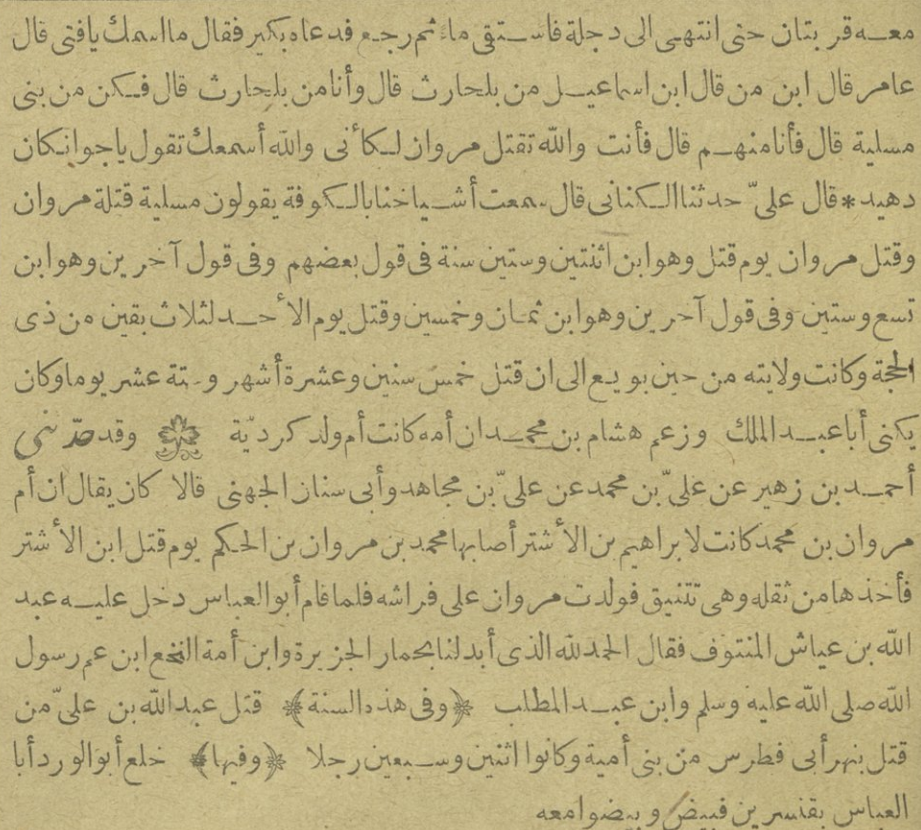 معه قربتان حتى انتهى الى دجلة فاستقى ماء ثم رجع فدعاه بكير فقال ما اسمك يا فتى قال
عامر قال ابن من قال ابن اسماعيل من بلحارث قال وأنا من بلحارث قال فكن من بنى
مسلية قال فأنا منهم قال فأنت والله تقتل مروان لكأنى والله أسمعك تقول ياجوانكان
دهيد * قال علىّ حدثنا الكنانى قال سمعت أشياخنا بالكوفة يقولون مسلية قتلة مروان
وقتل مروان يوم قتل وهو ابن اثنتين وستين سنة فى قول بعضهم وفى قول آخرين وهو ابن
تسع وستين وفى قول آخرين وهو ابن ثمان وخمسين وقتل يوم الأحد لثلاث بقين من ذى
الحجة وكانت ولايته من حين بويع الى ان قتل خمس سنين وعشرة أشهر وستة عشر يوما وكان
يكنى أبا عبد الملك وزعم هشام بن محمد ان أمه كانت أم ولد كرديّة وقد حدّثنى
أحمد بن زهير عن علىّ بن محمد عن علىّ بن مجاهد وأبى سنان الجهنى قالا كان يقال ان أم
مروان بن محمد كانت لابراهيم بن الأشتر أصابها محمد بن مروان بن الحكم يوم قتل ابن الأشتر
فأخذها من ثقله وهى تتنيق فولدت مروان على فراشه فلما قام أبو العباس دخل عليه عبد
الله بن عياش المنتوف فقال الحمد لله الذى أبدلنا بحمار الجزيرة وابن أمة النخع ابن عم رسول
الله صلى الله عليه وسلم وابن عبد المطلب ﴿وفى هذه السنة﴾ قتل عبد الله بن علىّ من
قتل بنهر أبى فطرس من بنى أمية وكانوا اثنين وسبعين رجلا ﴿وفيها﴾ خلع أبو الورد أبا
العباس بقنسرين فبيض وبيضوا معه